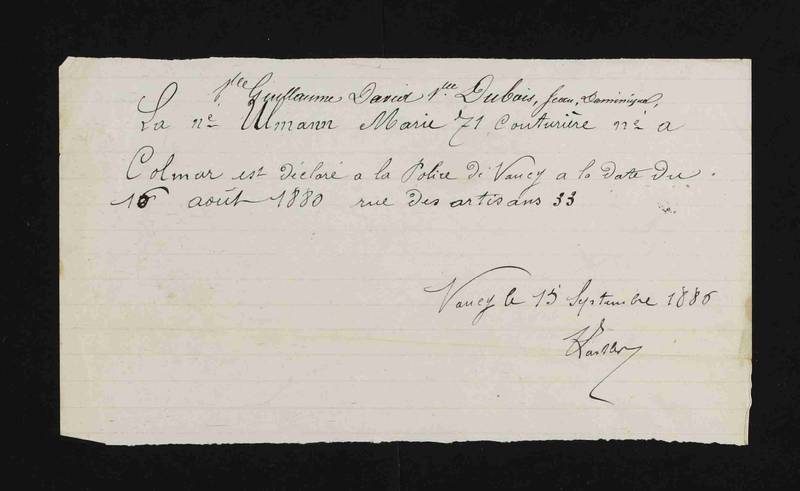 Guillaume David Dubois, Jean, Dominique,
La née Ulmann Marie 71 couturière née a
Colmar est déclaré a la Police de Nancy a la date du
16 août 1880 rue des artisans 33
Nancy le 15 Septembre 1886